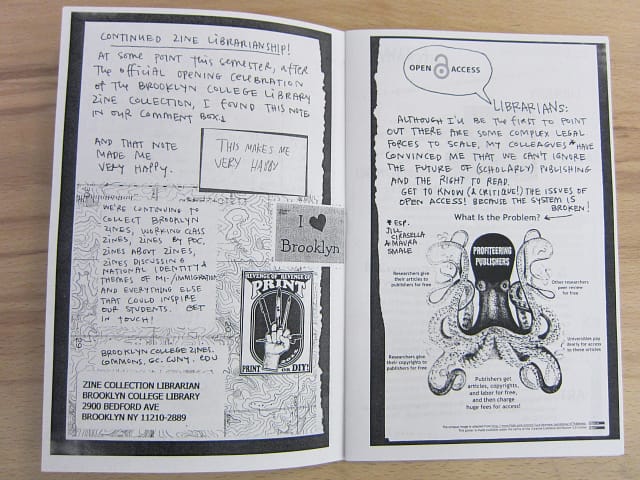 CONTINUED ZINE LIBRARIANSHIP!
AT SOME POINT THIS SEMESTER, AFTER
THE OFFICIAL OPENING CELEBRATION
OF THE BROOKLYN COLLEGE LIBRARY
ZINE COLLECTION, I FOUND THIS NOTE
IN OUR COMMENT BOX:
AND THAT NOTE
MADE ME
VERY HAPPY.
THIS MAKES ME
VERY HAPPY
WE'RE CONTINUING TO
COLLECT BROOKLYN
ZINES, WORKING CLASS
ZINES, ZINES BY POC,
ZINES ABOUT ZINES,
ZINES DISCUSSING
NATIONAL IDENTITY &
THEMES OF IM-/IMMIGRATION
AND EVERYTHING ELSE
THAT COULD INSPIRE
OUR STUDENTS. GET
IN TOUCH!
I ♥
Brooklyn
REVENGE OF REVENGE OF
PRINT
PRINT OR DIY!
BROOKLYN COLLEGE ZINES.
COMMONS.GC.CUNY.EDU
ZINE COLLECTION LIBRARIAN
BROOKLYN COLLEGE LIBRARY
2900 BEDFORD AVE
BROOKLYN NY 11210-2889
OPEN ACCESS
LIBRARIANS:
ALTHOUGH I'LL BE THE FIRST TO POINT
OUT THERE ARE SOME COMPLEX LEGAL
FORCES TO SCALE, MY COLLEAGUES* HAVE
CONVINCED ME THAT WE CAN'T IGNORE
THE FUTURE OF (SCHOLARLY) PUBLISHING
AND THE RIGHT TO READ.
GET TO KNOW (& CRITIQUE!) THE ISSUES OF
OPEN ACCESS! BECAUSE THE SYSTEM IS
BROKEN!
* ESP.
JILL
CIRASELLA
& MAURA
SMALE
What Is the Problem?
PROFITEERING
PUBLISHERS
Researchers give
their articles to
publishers for free
Other researchers
peer review
for free
Researchers give
their copyrights to
publishers for free
Universities pay
dearly for access
to these articles
Publishers get
articles, copyrights,
and labor for free,
and then charge
huge fees for access!